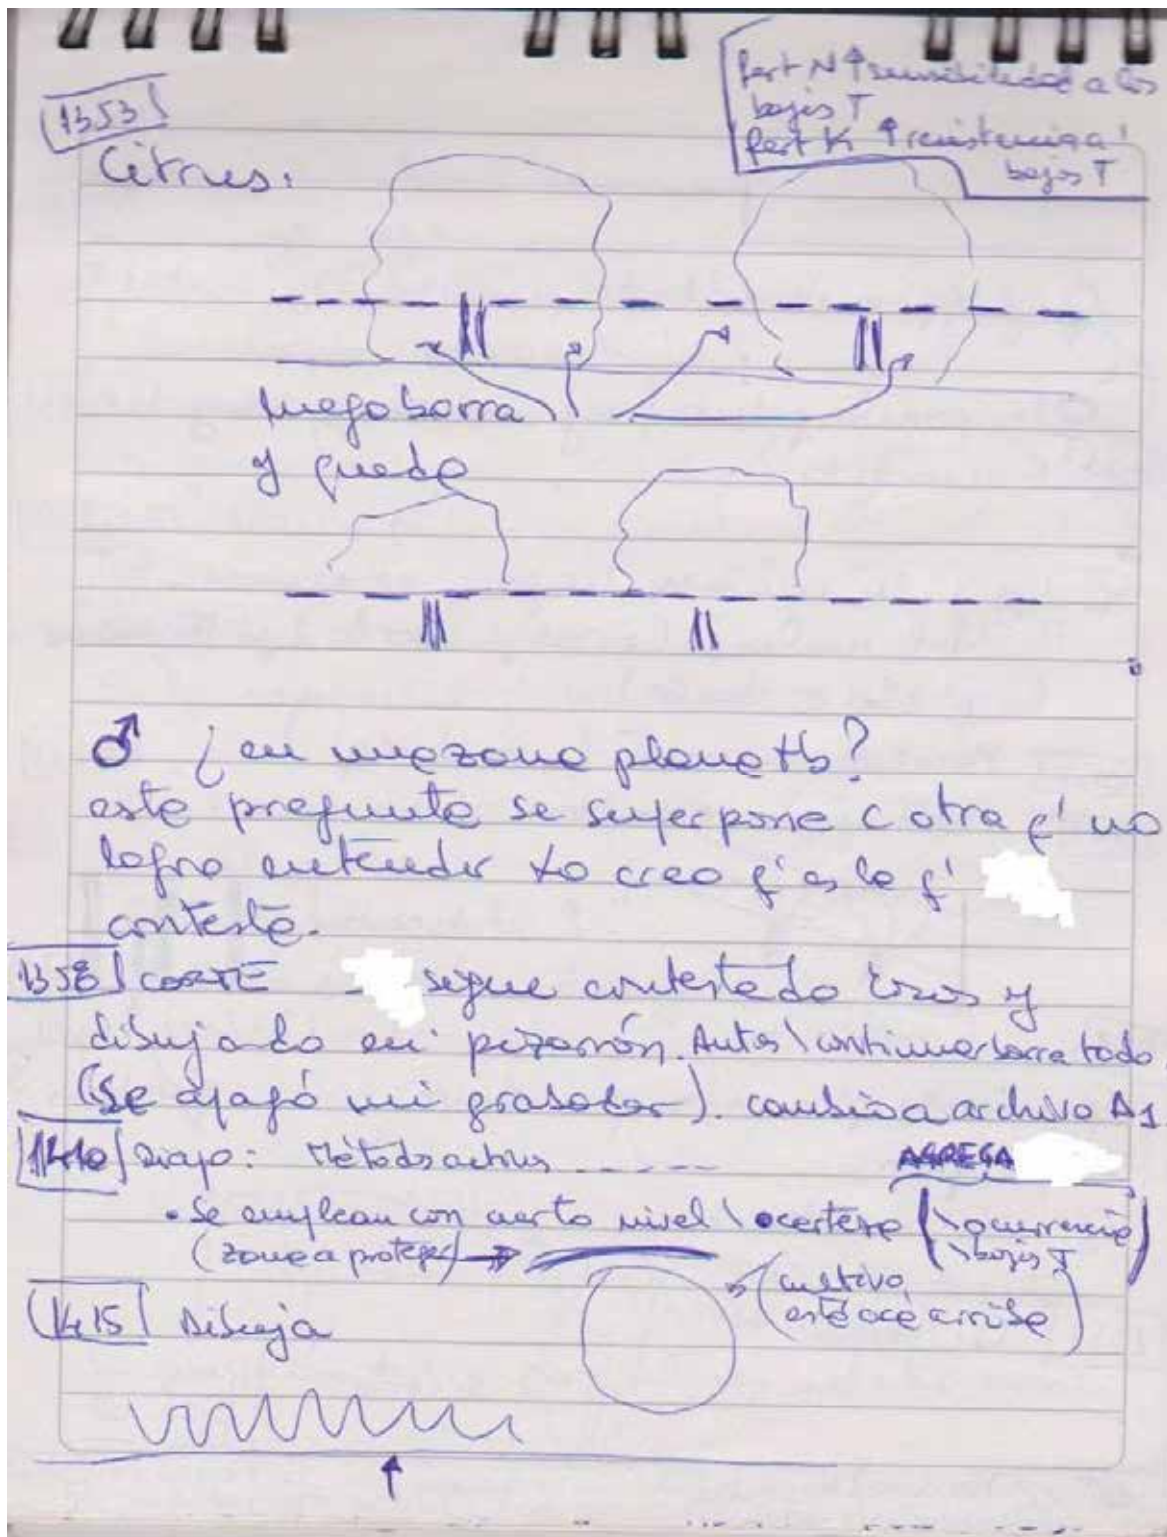 fert N ↑ sensibilidad a las
bajas T
fert K ↑ resistencia a
bajas T
1353
Citrus:
luego borra
y queda
♂ ¿en una zona plana
esta pregunta se superpone c otra q' no
logro entender xo creo q' es la q'
contesta.
1358 CORTE sigue contestado y
dibujado en pizarrón. Antes \ continuar borra todo
(Se apagó mi grabador). cambia a archivo A1
1410 Diapo: Métodos activos -----
AGREGA
• Se emplean con cierto nivel \ certeza (\ ocurrencia
\ bajas T)
(zona a proteger) →
(cultivo
está acá arriba)
1415 Dibuja